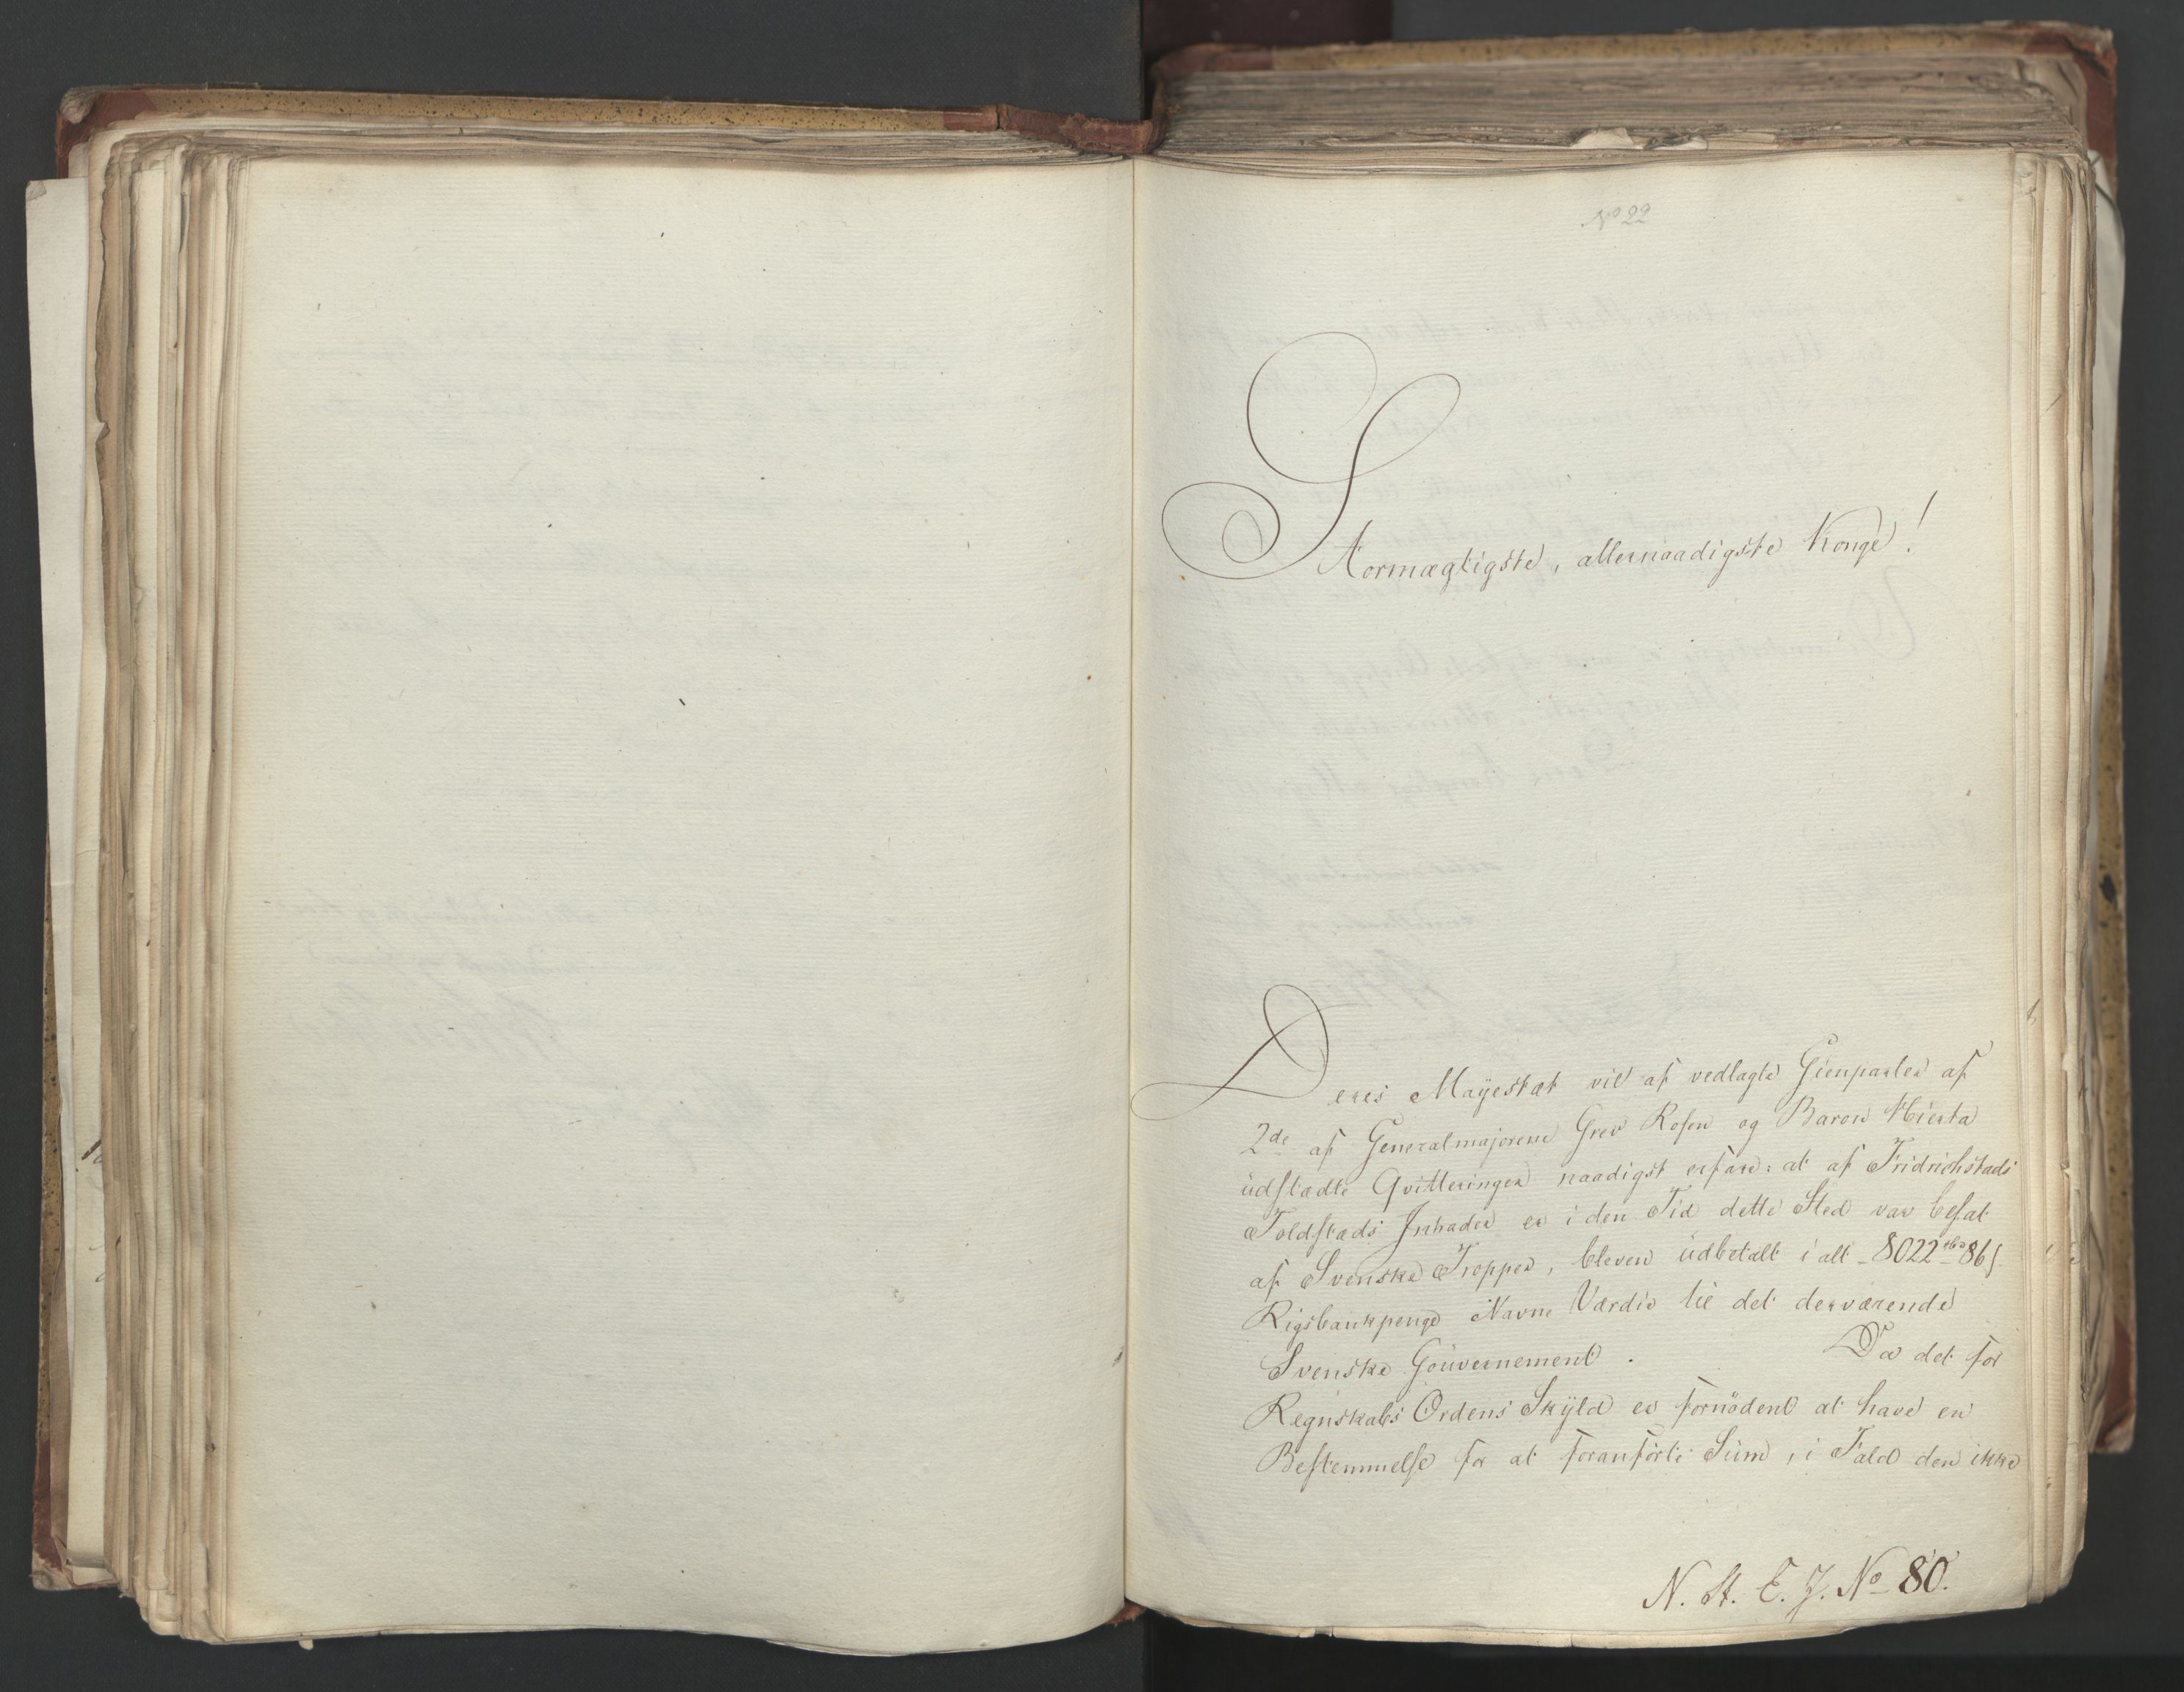 No 22
Stormægtigste, allernaadigste Konge!
Deres Mayestæt vil af vedlagte Gienparter af
2de af Generalmajorerne Grev Rosen og Baron Hierta
üdstædte Qvitteringer naadigst erfare: at af Fridrichstads
Toldsteds Intrader er i den Tid dette Sted var besat
af Svenske Tropper, bleven üdbetalt i alt 8022 rbd 86 s
Rigsbankpenge Navne Værdie til det derværende
Svenske Goüvernement. Da det for
Regnskabs Ordens Skÿld er fornödent at have en
Bestemmelse for at foranförte Süm, i Fald den ikke
N. St. E. J. No 80.